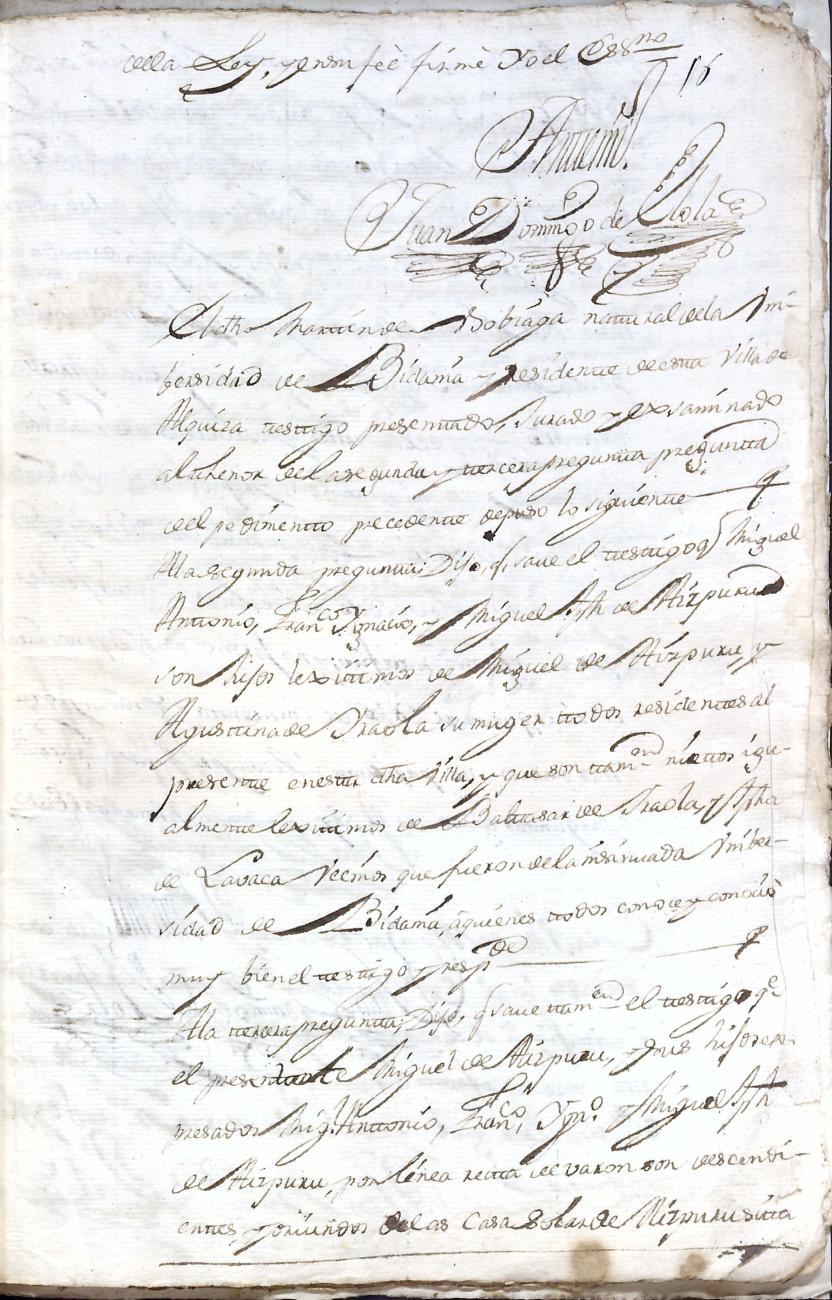 della Ley, y en mi feè firmè Yo el Essno
16
Antemi.
Juan Domingo de Elola
El dho Martin de Sobiaga natural de la Vni-
bersidad de Bidania y residente de esta Villa de
Alquiza testigo presentado, Jurado y exsaminado
al thenor de la segunda y tercera pregunta pregunta
del pedimentto precedente depuso lo siguiente
Ala segunda pregunta: Dijo, q save el testigo q Miguel
Anttonio, Franco Ygnacio, y Miguel Jph de Aizpuru
son hijos lexitimos de Miguel de Aizpuru, y
Agustina de Yraola su muger ttodos residentes al
presente en esta dha Villa, y que son tamn niettos igu-
almente lexitimos de Baltasar de Yraola, y Jpha
de Lavaca Vecinos que fueron de la insinuada Vniber-
sidad de Bidania, aquienes ttodos conoce y conociò
muy bien el testigo y respde
Ala tercera pregunta, Dijo, q save tamen el testigo qe
el presentante Miguel de Aizpuru, y sus hijos ex-
presados Migl Anttonio, Franco, Ygno y Miguel Jph
de Aizpuru, por linea recta de varon son descendi-
entes, y oriundos de las Casa Solar de Aizpuru sita